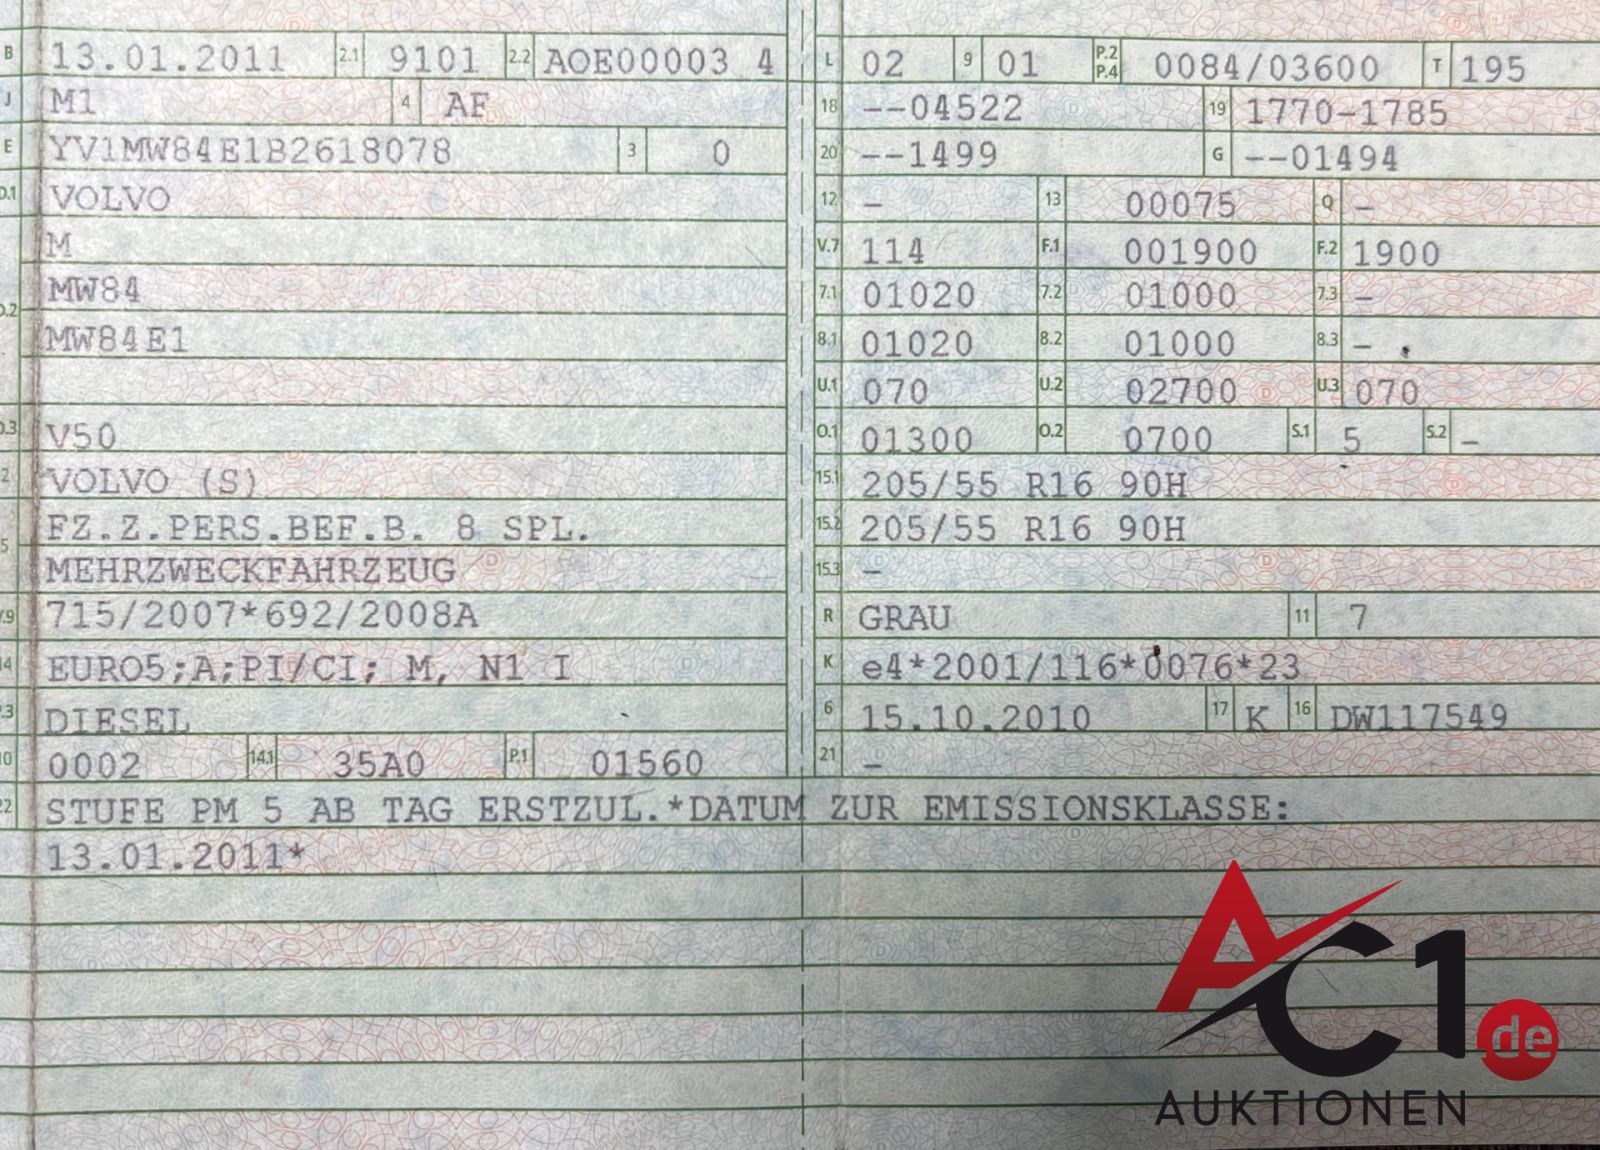 B 13.01.2011 2.1 9101 2.2 AOE00003 4
J M1 4 AF
E YV1MW84E1B2618078 3 0
D.1 VOLVO
M
MW84
D.2
MW84E1
D.3 V50
2 VOLVO (S)
FZ.Z.PERS.BEF.B. 8 SPL.
5
MEHRZWECKFAHRZEUG
V.9 715/2007*692/2008A
14 EURO5;A;PI/CI; M, N1 I
P.3 DIESEL
10 0002 14.1 35A0 P.1 01560
L 02 9 01 P.2 P.4 0084/03600 T 195
18 --04522 19 1770-1785
20 --1499 G --01494
12 - 13 00075 Q -
V.7 114 F.1 001900 F.2 1900
7.1 01020 7.2 01000 7.3 -
8.1 01020 8.2 01000 8.3 -
U.1 070 U.2 02700 U.3 070
O.1 01300 O.2 0700 S.1 5 S.2 -
15.1 205/55 R16 90H
15.2 205/55 R16 90H
15.3 -
R GRAU 11 7
K e4*2001/116*0076*23
6 15.10.2010 17 K 16 DW117549
21 -
22 STUFE PM 5 AB TAG ERSTZUL.*DATUM ZUR EMISSIONSKLASSE:
13.01.2011*
AC1.de
AUKTIONEN